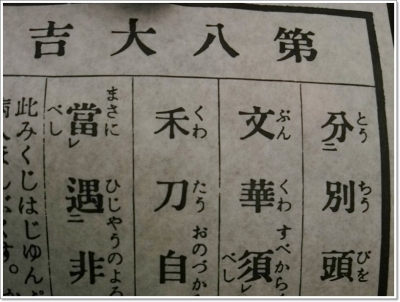 第八大吉
分二別頭
とう ちう びを
文華須レ
ぶん くわ すべから べし
禾刀自
くわ たう おのづか
當レ遇二非
まさに べし ひじやうのよろ
此みくじはじゆん
病人ほんぶくす。